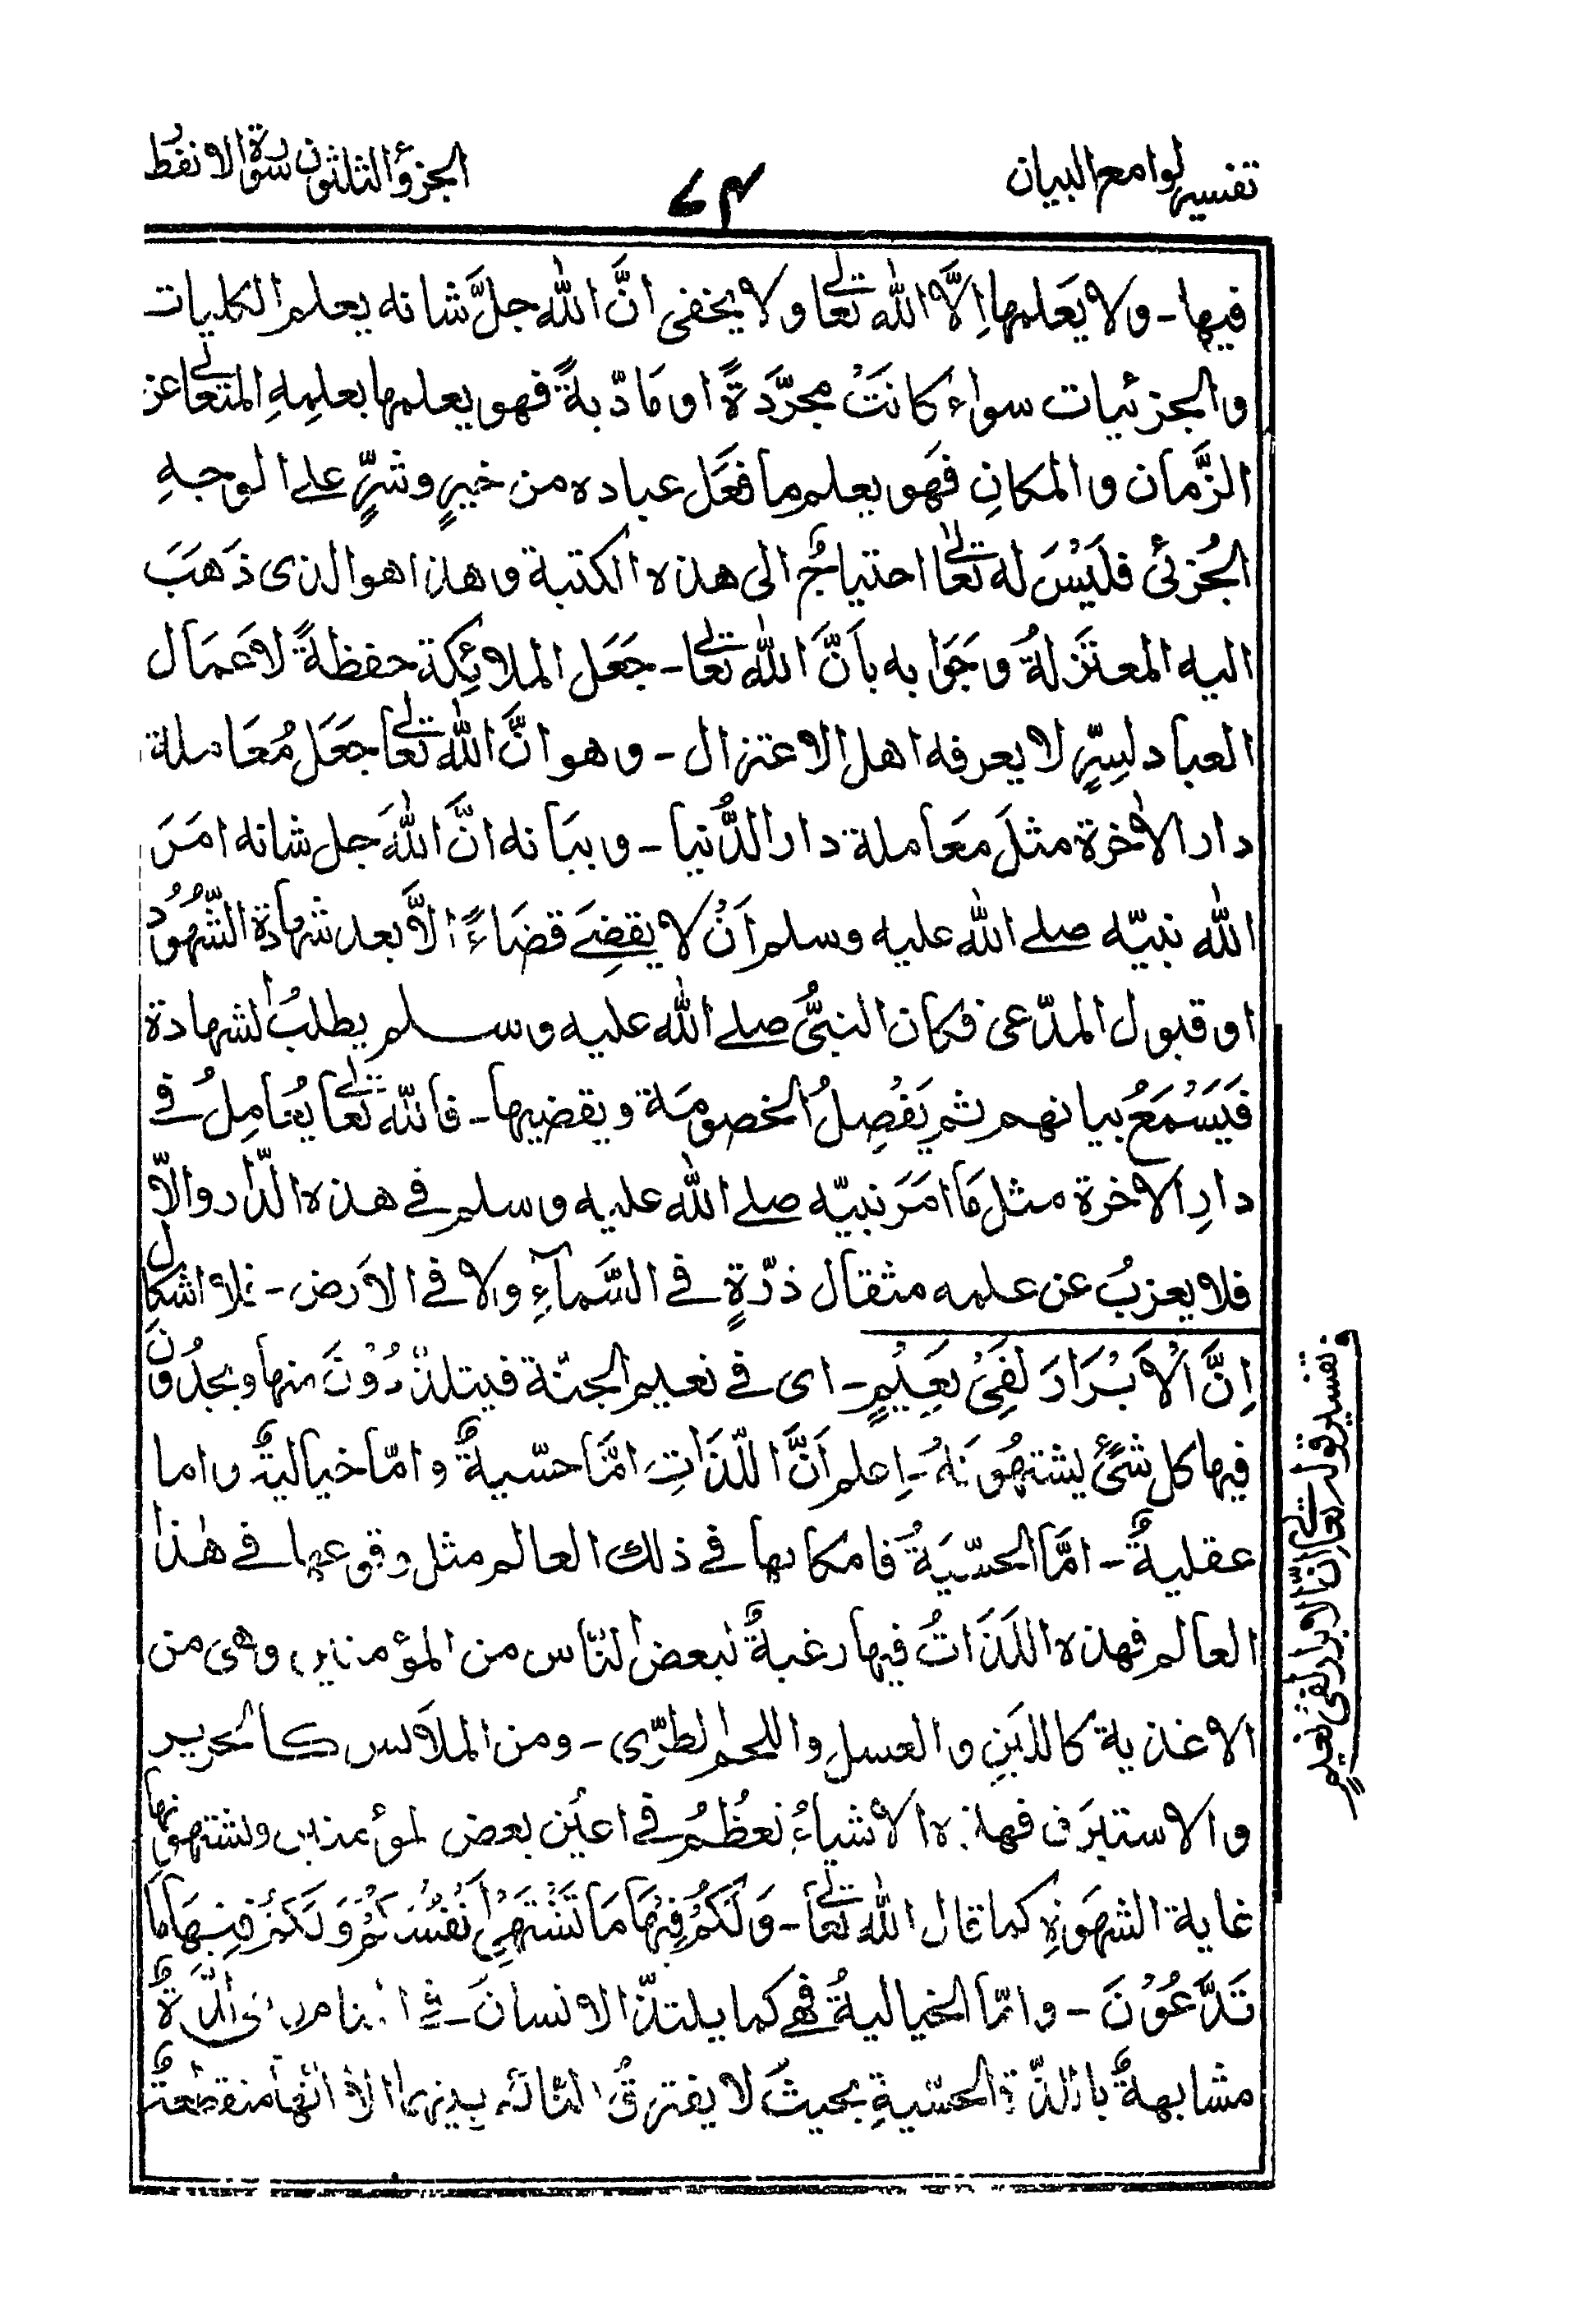 تفسير لوامع البيان
٧٤
الجزؤ الثلثون سورة الانفطر
فيها - ولا يَعَلمها اِلاَّ الله تعالے ولا يخفى انَّ الله جلَّ شانه يعلم الكليات
والجزئيات سواء كانَتْ مجرَّدةً او مَادّيةً فهو يعلمها بعلمِهِ المتعالے عن
الزَّمان والمكانِ فَهو يعلم ما فَعَل عباده من خيرٍ وشرٍّ علے الوجهِ
الجُزئى فلَيْسَ له تعالےٰ احتياجٌ الى هذه الكتبة وهذا هو الذى ذَهَبَ
اليه المعتَزلةُ وجَوابه بأنَّ الله تعالے - جَعَل الملائِكة حفظةً لاَعمَال
العباد لسِرٍّ لا يعرفه اهل الاعتزال - وهو انَّ الله تعالے جَعَل مُعَاملة
دار الاٰخرة مثلَ مَعاملة دار الدُّنيا - وبيَانه انَّ اللهَ جل شانه امَرَ
الله نبيّه صلے الله عليه وسلم اَنْ لا يقضِےَ قضَاءً الاَّ بعد شهادة الشُّهُوُدِ
او قبول المدّعى فكان النبىُّ صلے الله عليه وسلم يطلبُ الشهادة
فَيَسْمَعُ بيانهم ثم يَفْصِلُ الخصومَة ويقضيها - فالله تعالے يُعَامِلُ فے
دارِ الاٰخرة مثل مَا امَرَ نبيّه صلے الله عليه وسلم فے هذه الدّار والاّ
فلا يعزبُ عن علمه مثقال ذرّةٍ فے السَّمآءِ ولا فے الاَرض - فلا اشكال
اِنَّ الْاَبْرَارَ لَفِىْ نَعِيْمٍ - اى فے نعيم الجنّة فيتلذّذُوْنَ منها ويجدُونَ
فيها كل شئٍ يشتهُونَهُ - اِعلم اَنَّ اللّذَاتِ امَّا حسّيةٌ وامّا خياليةٌ واما
عقليةٌ - امَّا الحسّيَةُ فامكانها فے ذلك العالم مثل وقوعها فے هٰذا
العالم فهذه اللَذَاتُ فيها رغبةٌ لبعض النّاس من المؤمنين وهى من
الاغذية كاللبَنِ والعسل واللحم الطرّى - ومن الملاَبس كالحرير
والاستبرَق فهذه الاَشياءُ نعظُمُ فے اعيُن بعض المؤمنين ويشتهونها
غاية الشهَوةِ كما قال الله تعالے - وَلَكُمْ فِيْهَا مَا تَشْتَهِىْ اَنْفُسُكُمْ وَلَكُمْ فِيْهَا مَا
تَدَّعُوْنَ - وامّا الخياليةُ فهے كما يلتذّ الانسانَ فے المنام
مشابهةٌ باللذّة الحسّيةِ بحيثُ لا يفترقُ النائم بينهما الاّ انّها منقطعةٌ
تفسير قوله تعالے اِنّ الابرار لفى نعيم